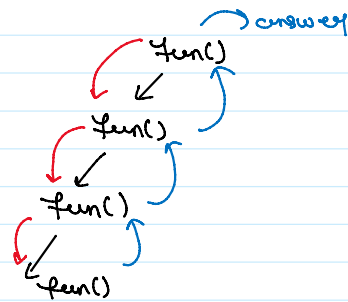 answer
fun()
fun()
fun()
fun()